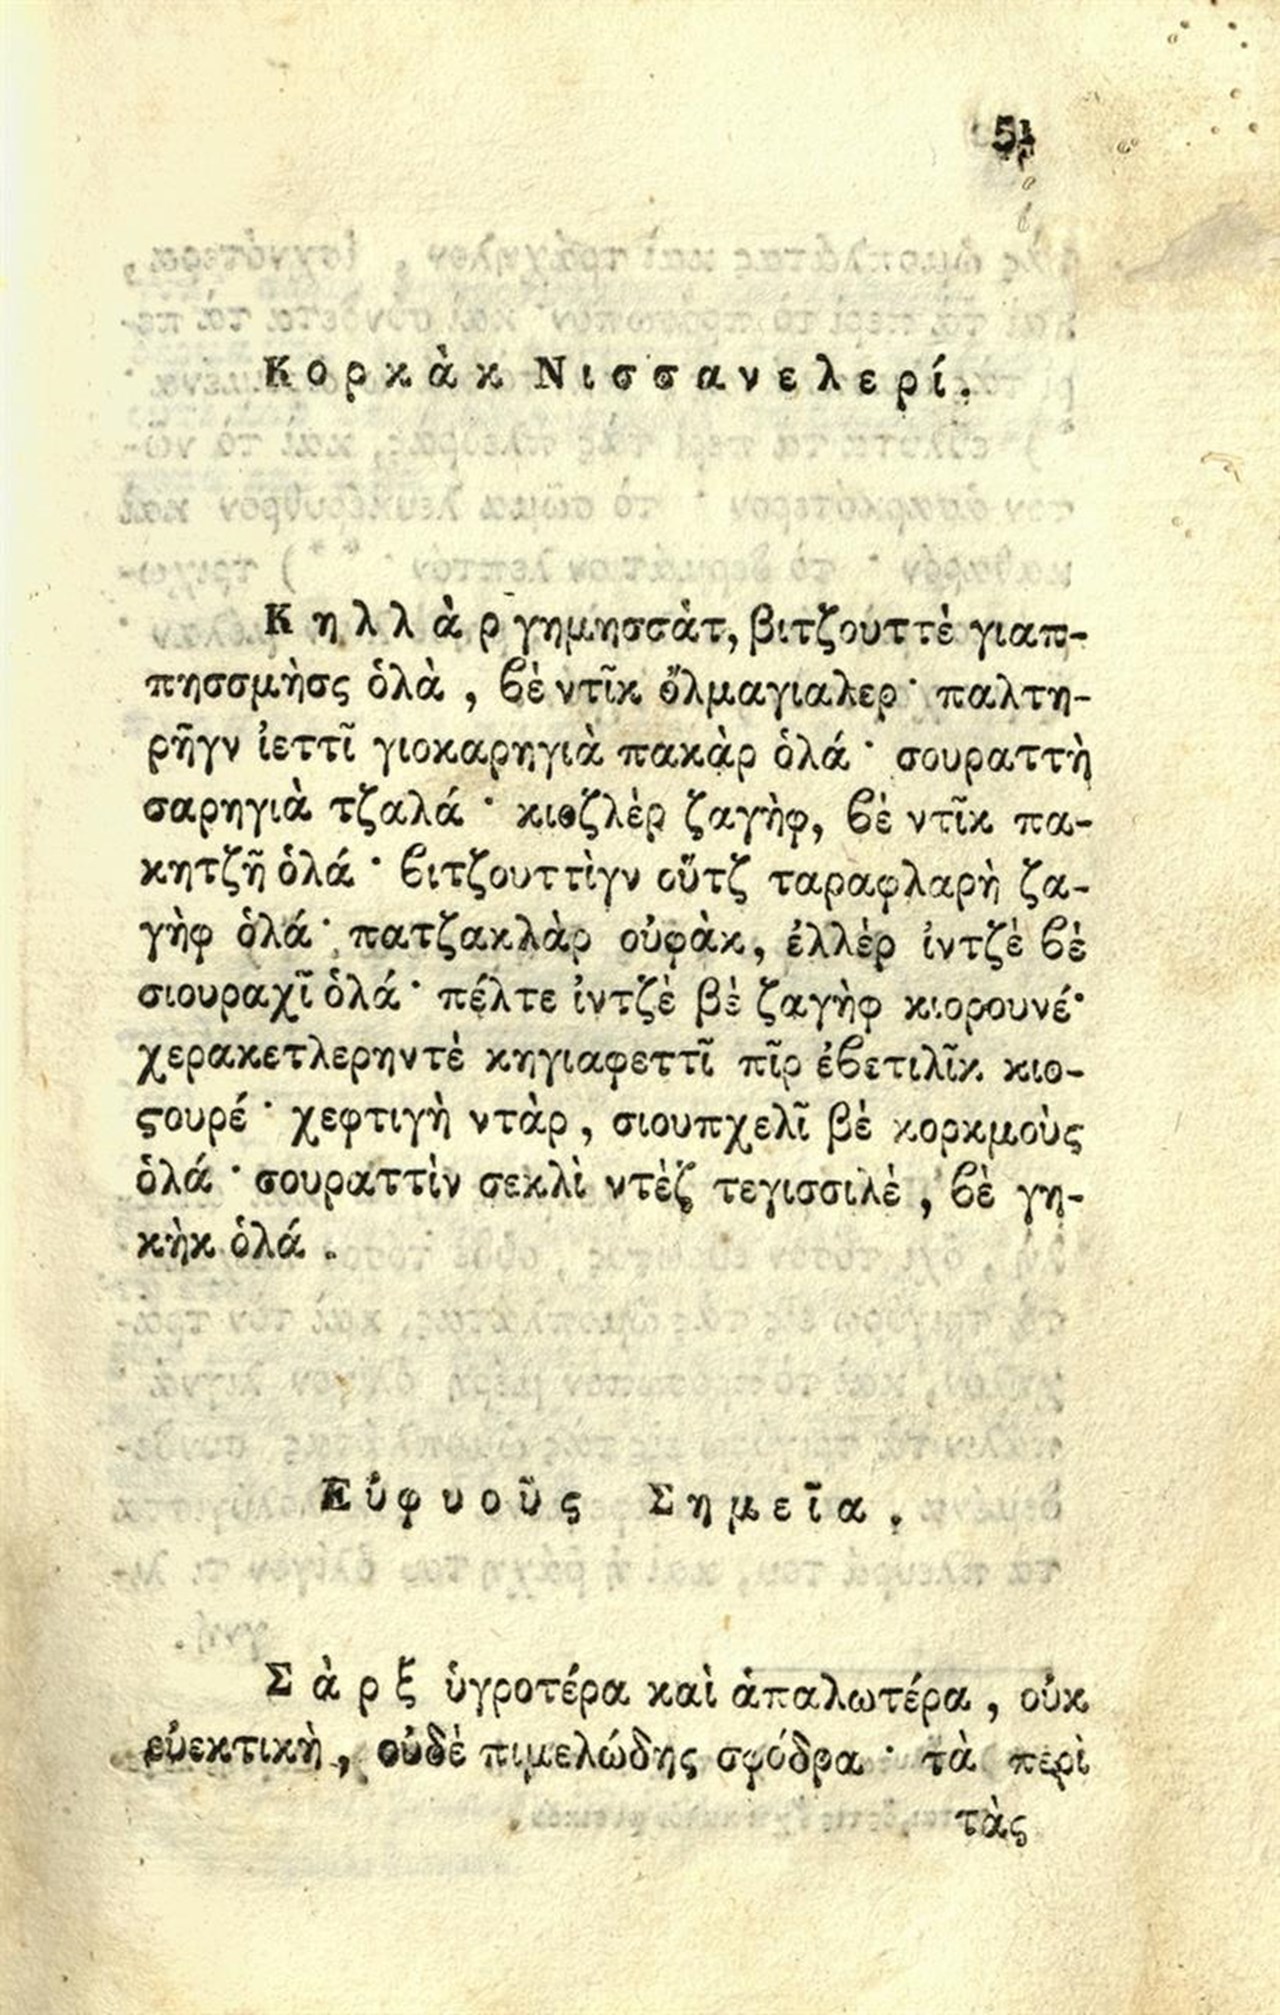 51
Κορκὰκ Νισσανελερί.
Κηλλὰρ γημησσὰτ, βιτζουττὲ γιαπ-
πησσμὴσς ὁλὰ, ϐὲ ντῖκ ὄλμαγιαλερ· παλτη-
ρῆγν ἰεττῖ γιοκαρηγιὰ πακὰρ ὁλά· σουραττὴ
σαρηγιὰ τζαλά· κιοζλὲρ ζαγὴφ, ϐὲ ντῖκ πα-
κητζῆ ὁλά· ϐιτζουττὶγν οὔτζ ταραφλαρὴ ζα-
γὴφ ὁλά· πατζακλὰρ οὐφὰκ, ἐλλὲρ ἰντζὲ ϐὲ
σιουραχῖ ὁλά· πέλτε ἰντζὲ βὲ ζαγὴφ κιορουνέ·
χερακετλερηντὲ κηγιαφεττῖ πῖρ ἐϐετιλῖκ κιο-
ςουρέ· χεφτιγὴ ντὰρ, σιουπχελῖ βὲ κορκμοὺς
ὁλά· σουραττὶν σεκλὶ ντὲζ τεγισσιλὲ, ϐὲ γη-
κὴκ ὁλά.
Εὐφυοῦς Σημεῖα.
Σὰρξ ὑγροτέρα καὶ ἁπαλωτέρα, οὐκ
εὐεκτικὴ, οὐδὲ πιμελώδης σφόδρα· τὰ περὶ
τὰς